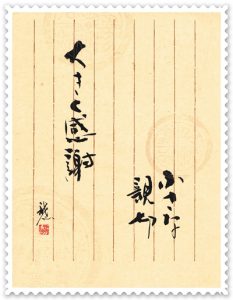 小さな
親切
大きく感謝